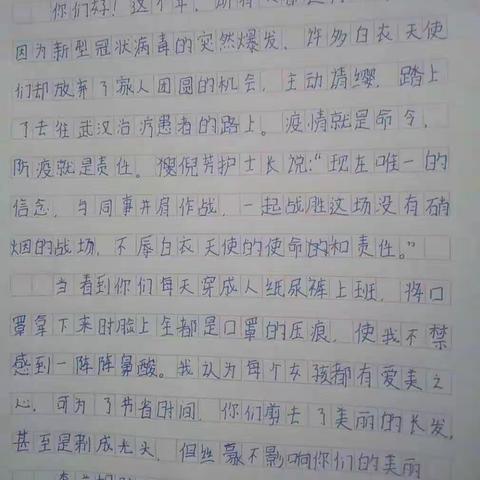 你们好！这个年，所有人都
因为新型冠状病毒的突然爆发，许多白衣天使
们却放弃了家人团圆的机会，主动请缨，踏上
了去往武汉治疗患者的路上。疫情就是命令，
防疫就是责任。獴倪芳护士长说：“现在唯一的
信念，与同事并肩作战，一起战胜这场没有硝
烟的战场，不辱白衣天使的使命的和责任。”
当看到你们每天穿成人纸尿裤上班，将口
罩拿下来时脸上全都是口罩的压痕，使我不禁
感到一阵阵鼻酸。我认为每个女孩都有爱美之
心，可为了节省时间，你们剪去了美丽的长发，
甚至是剃成光头，但丝毫不影响你们的美丽